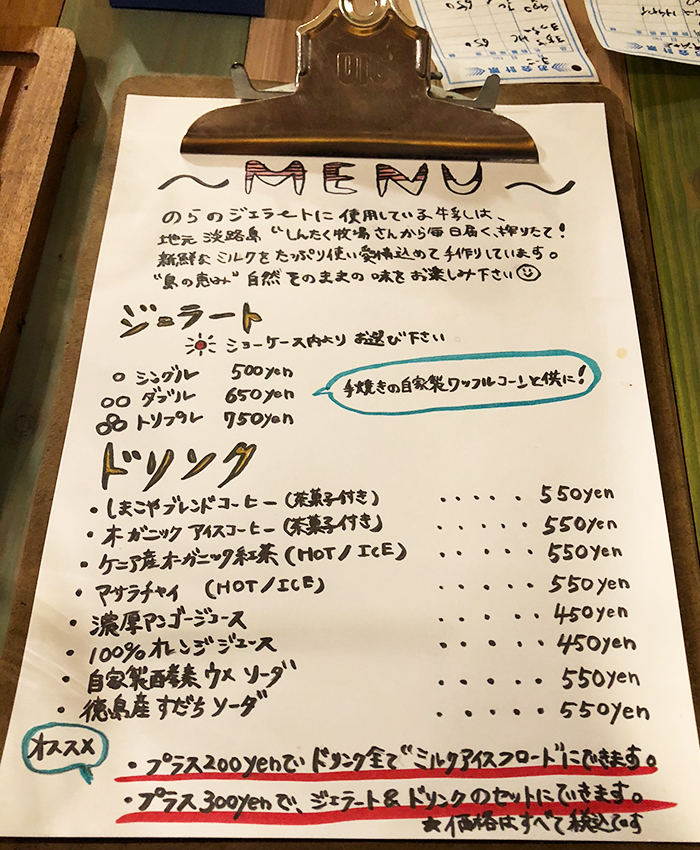 OTS
お会計票
650
650
~MENU~
のらのジェラートに使用している牛乳は、
地元 淡路島 "しんたく牧場さんから毎日届く、搾りたて!
新鮮なミルクをたっぷり使い愛情込めて手作りしています。
"島の恵み" 自然そのままの味をお楽しみ下さい
ジェラート
ショーケース内より お選び下さい
シングル 500yen
ダブル 650yen
トリプル 750yen
手焼きの自家製ワッフルコーンと供に!
ドリンク
・しまこやブレンドコーヒー(茶菓子付き) ・・・・・ 550yen
・オーガニック アイスコーヒー(茶菓子付き) ・・・・・ 550yen
・ケニア産オーガニック紅茶(HOT/ICE) ・・・・・ 550yen
・マサラチャイ (HOT/ICE) ・・・・・ 550yen
・濃厚マンゴージュース ・・・・・ 450yen
・100%オレンジジュース ・・・・・ 450yen
・自家製酵素ウメソーダ ・・・・・ 550yen
・徳島産すだちソーダ ・・・・・ 550yen
オススメ
・プラス200yenでドリンク全て"ミルクアイスフロート"にできます。
・プラス300yenで、ジェラート&ドリンクのセットにできます。
★価格はすべて税込です